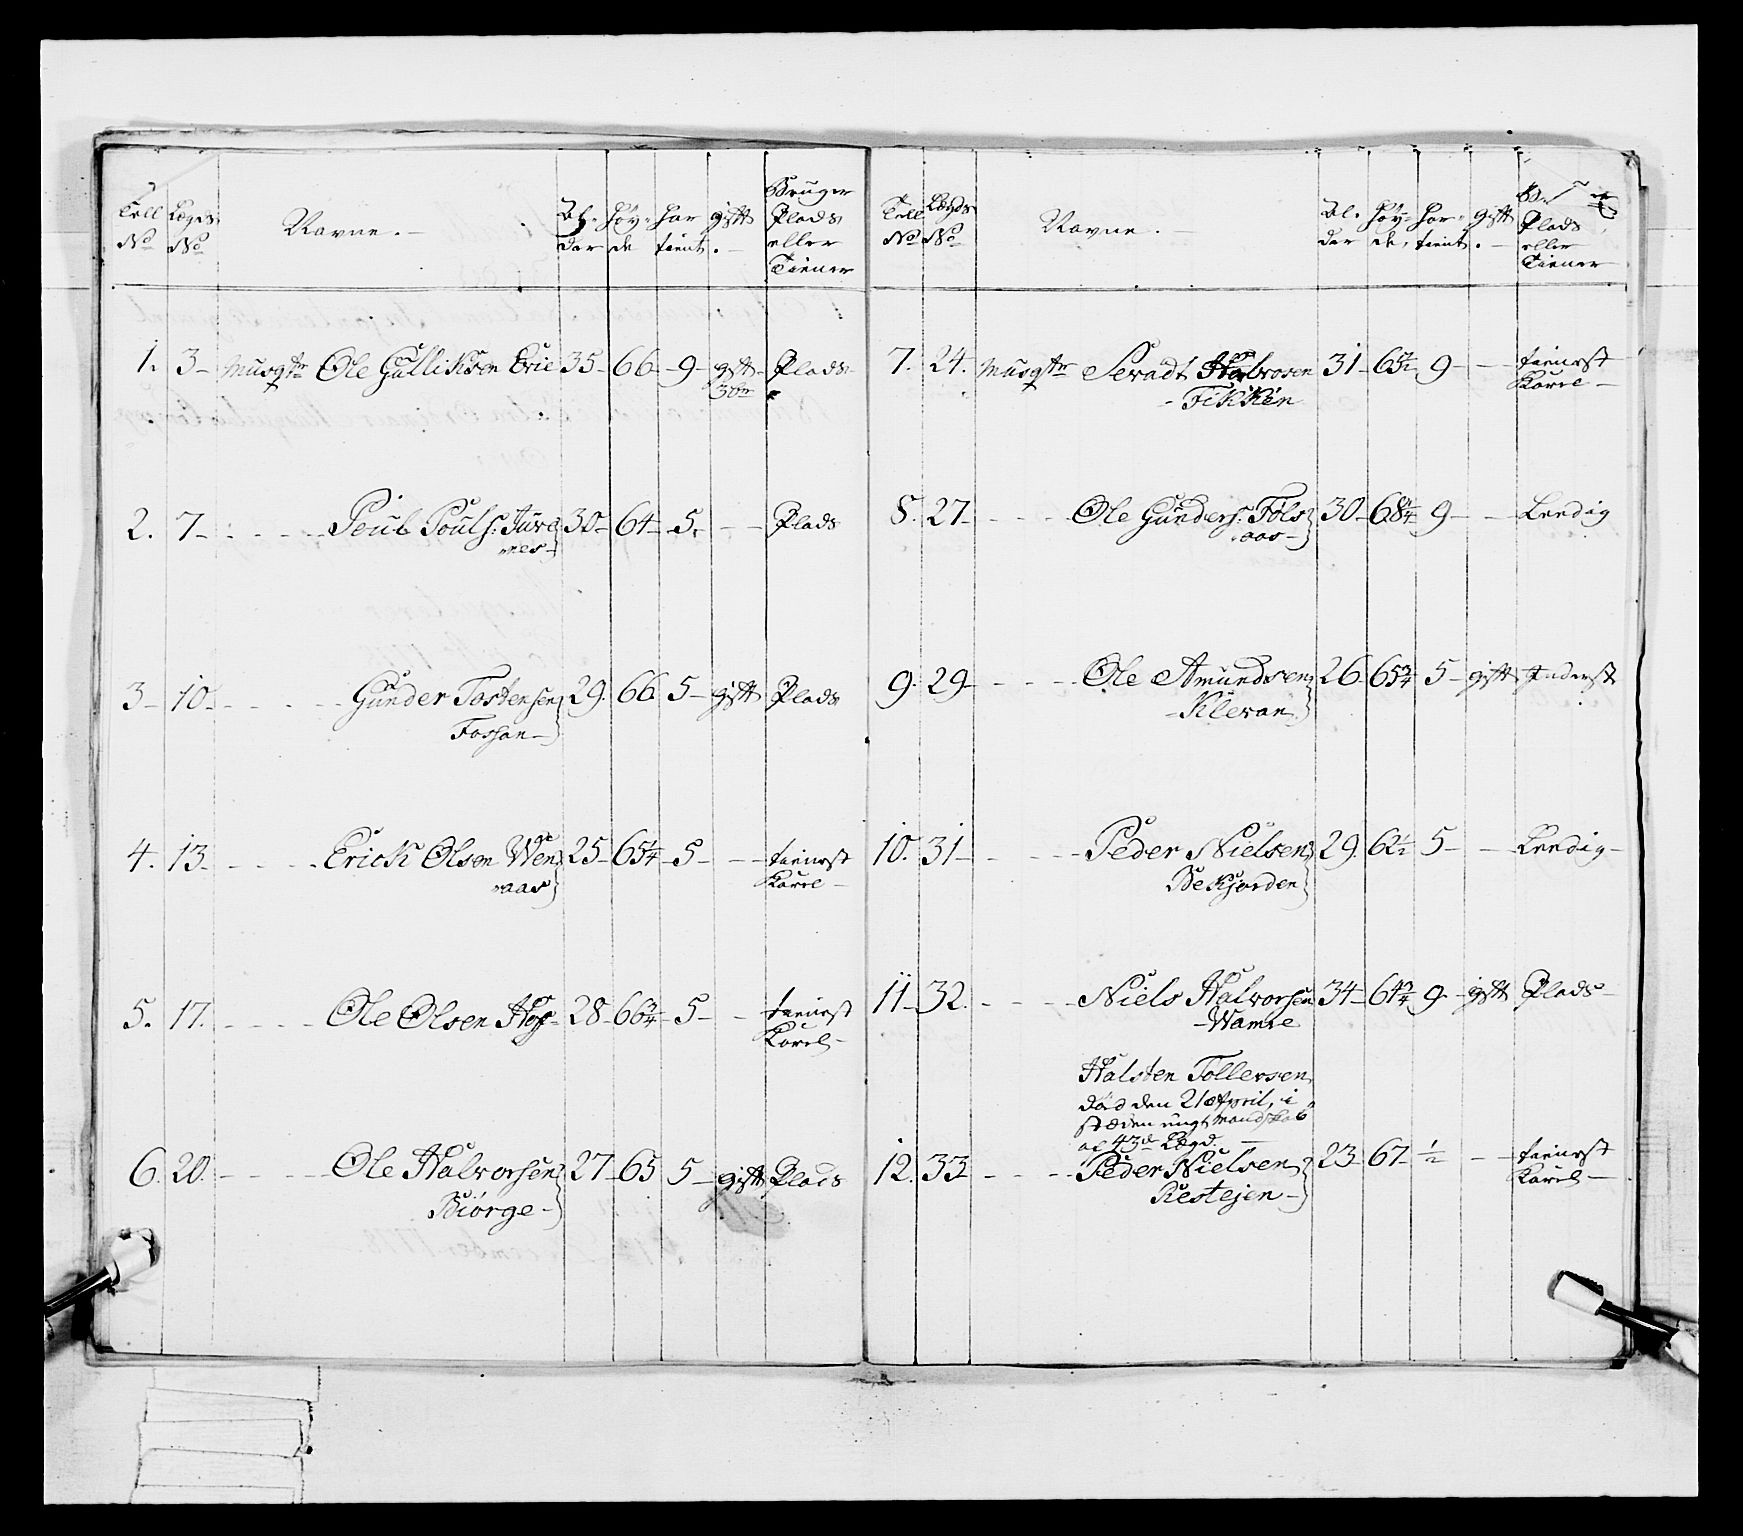 Tell No Lægds No Navne. Al= der Høy= de Har tient gift. Bruger Plads eller Tiener
1. 3 Musqtr Ole Gulliksen Erie 35 66 9 gift 3 Plads
2. 7 Poul Pouls: Jurg
nes 30 64 5 Plads
3 10 Gunder Tostensen
Fossan 29. 66 5 gift Plads
4. 13 Erick Olsen Wen
aas 25 65 1/4 5 tienest
Karel
5. 17. Ole Olsen 28 66 3/4 5 tienest
Karel
6. 20. Ole Halvorsen
Biørge 27 65 5 gift Plads
Tell No Lægds No Navne. Al= der Høy= de, Har= tient. gift Plads eller Tiener
7. 24. Musqtr
Fikkén 31 65 1/2 9 tienest
Karel
8. 27 Ole Gunders: Føls
aas 30 68 1/4 9 Leedig
9. 29 Ole Amundsen
Klevan 26 65 3/4 5 gift Inderst
10. 31 Peder Nielsen
Bekjorden 29. 62 1/2 5 Leedig
11 32. Niels Halvorsen
Wamre 34 64 3/4 9 gift Plads
Halsten Tollevsen
død den 21 April, i
stæden ungt Mandskab
af 43de Lægd.
12. 33 Peder Nielsen
Kestejen 23 67 1/2 tienest
Karel